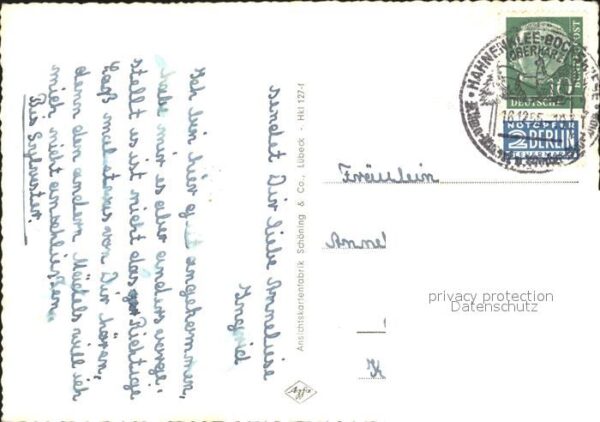 Ich bin hier gut angekommen,
habe mir es aber anders vorge-
stellt es ist nicht das Richtige
Laß mal etwas von Dir hören,
denn den andern Mädels will ich
mich nicht anschließen.
Bis Sylvester.
sendet Dir liebe Anneliese
Ingrid
Ansichtskartenfabrik Schöning & Co., Lübeck · Hkl 127-f
Agfa
HAHNENKLEE-BOCKSWIESE
OBERHARZ
16.12.55
10
DEUTSCHE
BUNDESPOST
NOTOPFER
2 BERLIN
STEUERMARKE
Fräulein
Anne
K
privacy protection
Datenschutz